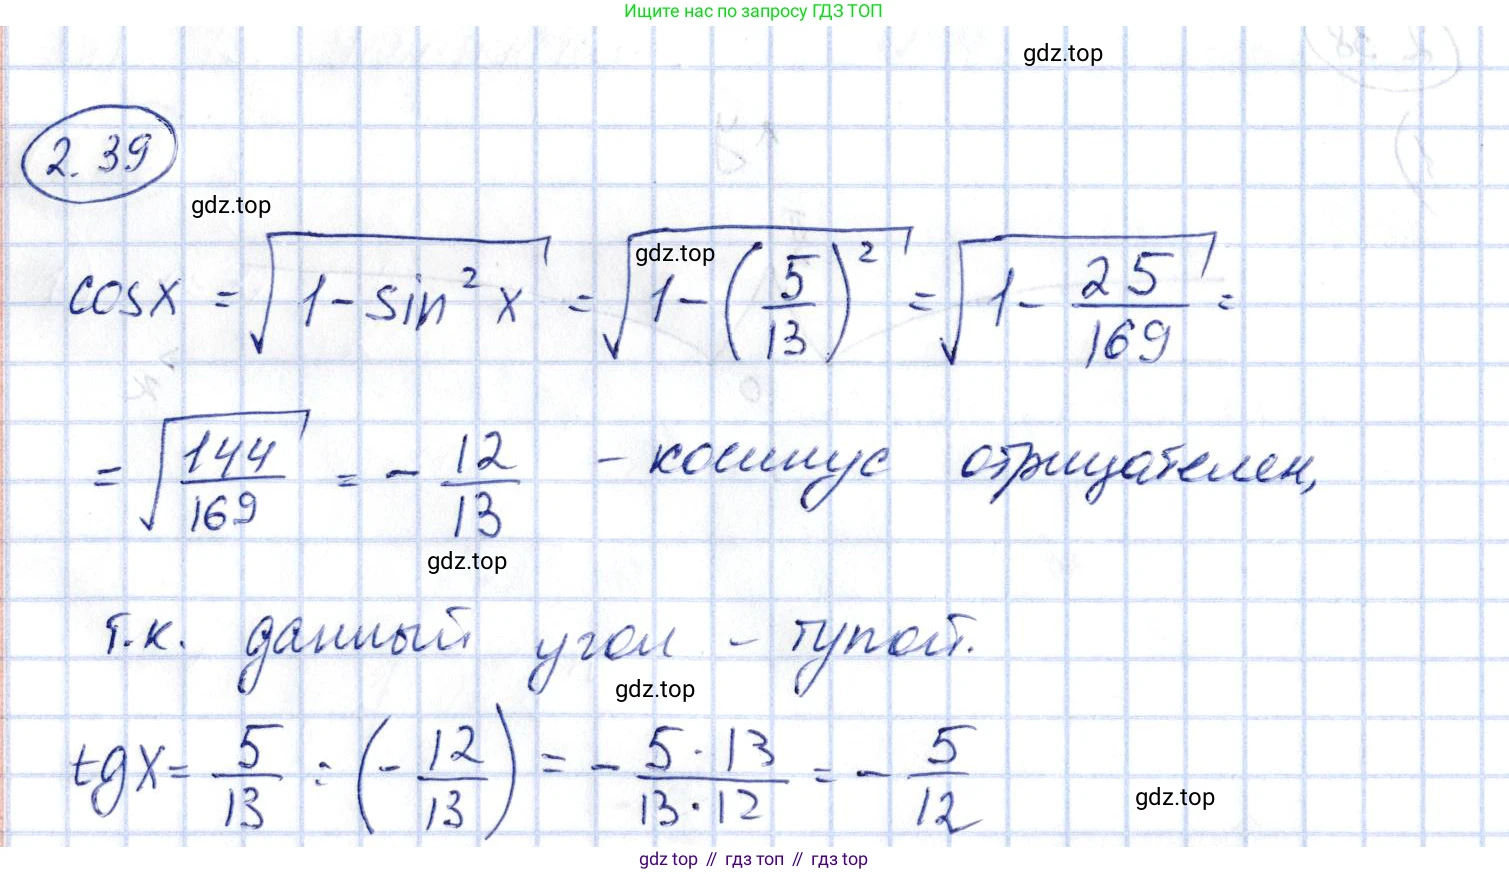 Ищите нас по запросу ГДЗ ТОП
gdz.top
2.39
gdz.top
gdz.top
cosx = √(1 - sin²x) = √(1 - (5/13)²) = √(1 - 25/169) =
= √(144/169) = - 12/13 - косинус отрицателен,
gdz.top
т.к. данный угол - тупой.
gdz.top
tgx = 5/13 : (- 12/13) = - 5·13/13·12 = - 5/12
gdz.top
gdz top // гдз топ // гдз top